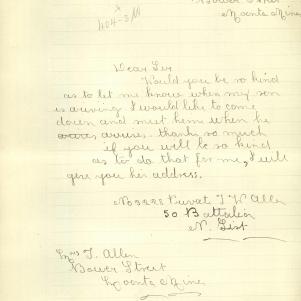 Bower Street
Moonta Mines
404-3
Dear Sir
Would you be so kind
as to let me know when my son
is arriving I would like to come
down and meet him when he
arrives. thanks so much
if you will be so kind
as to do that for me, I will
give you his address.
No 3228 Privat T W Allen
50 Battalion
N. List
Mrs T. Allen
Bower Street
Moonta Mines